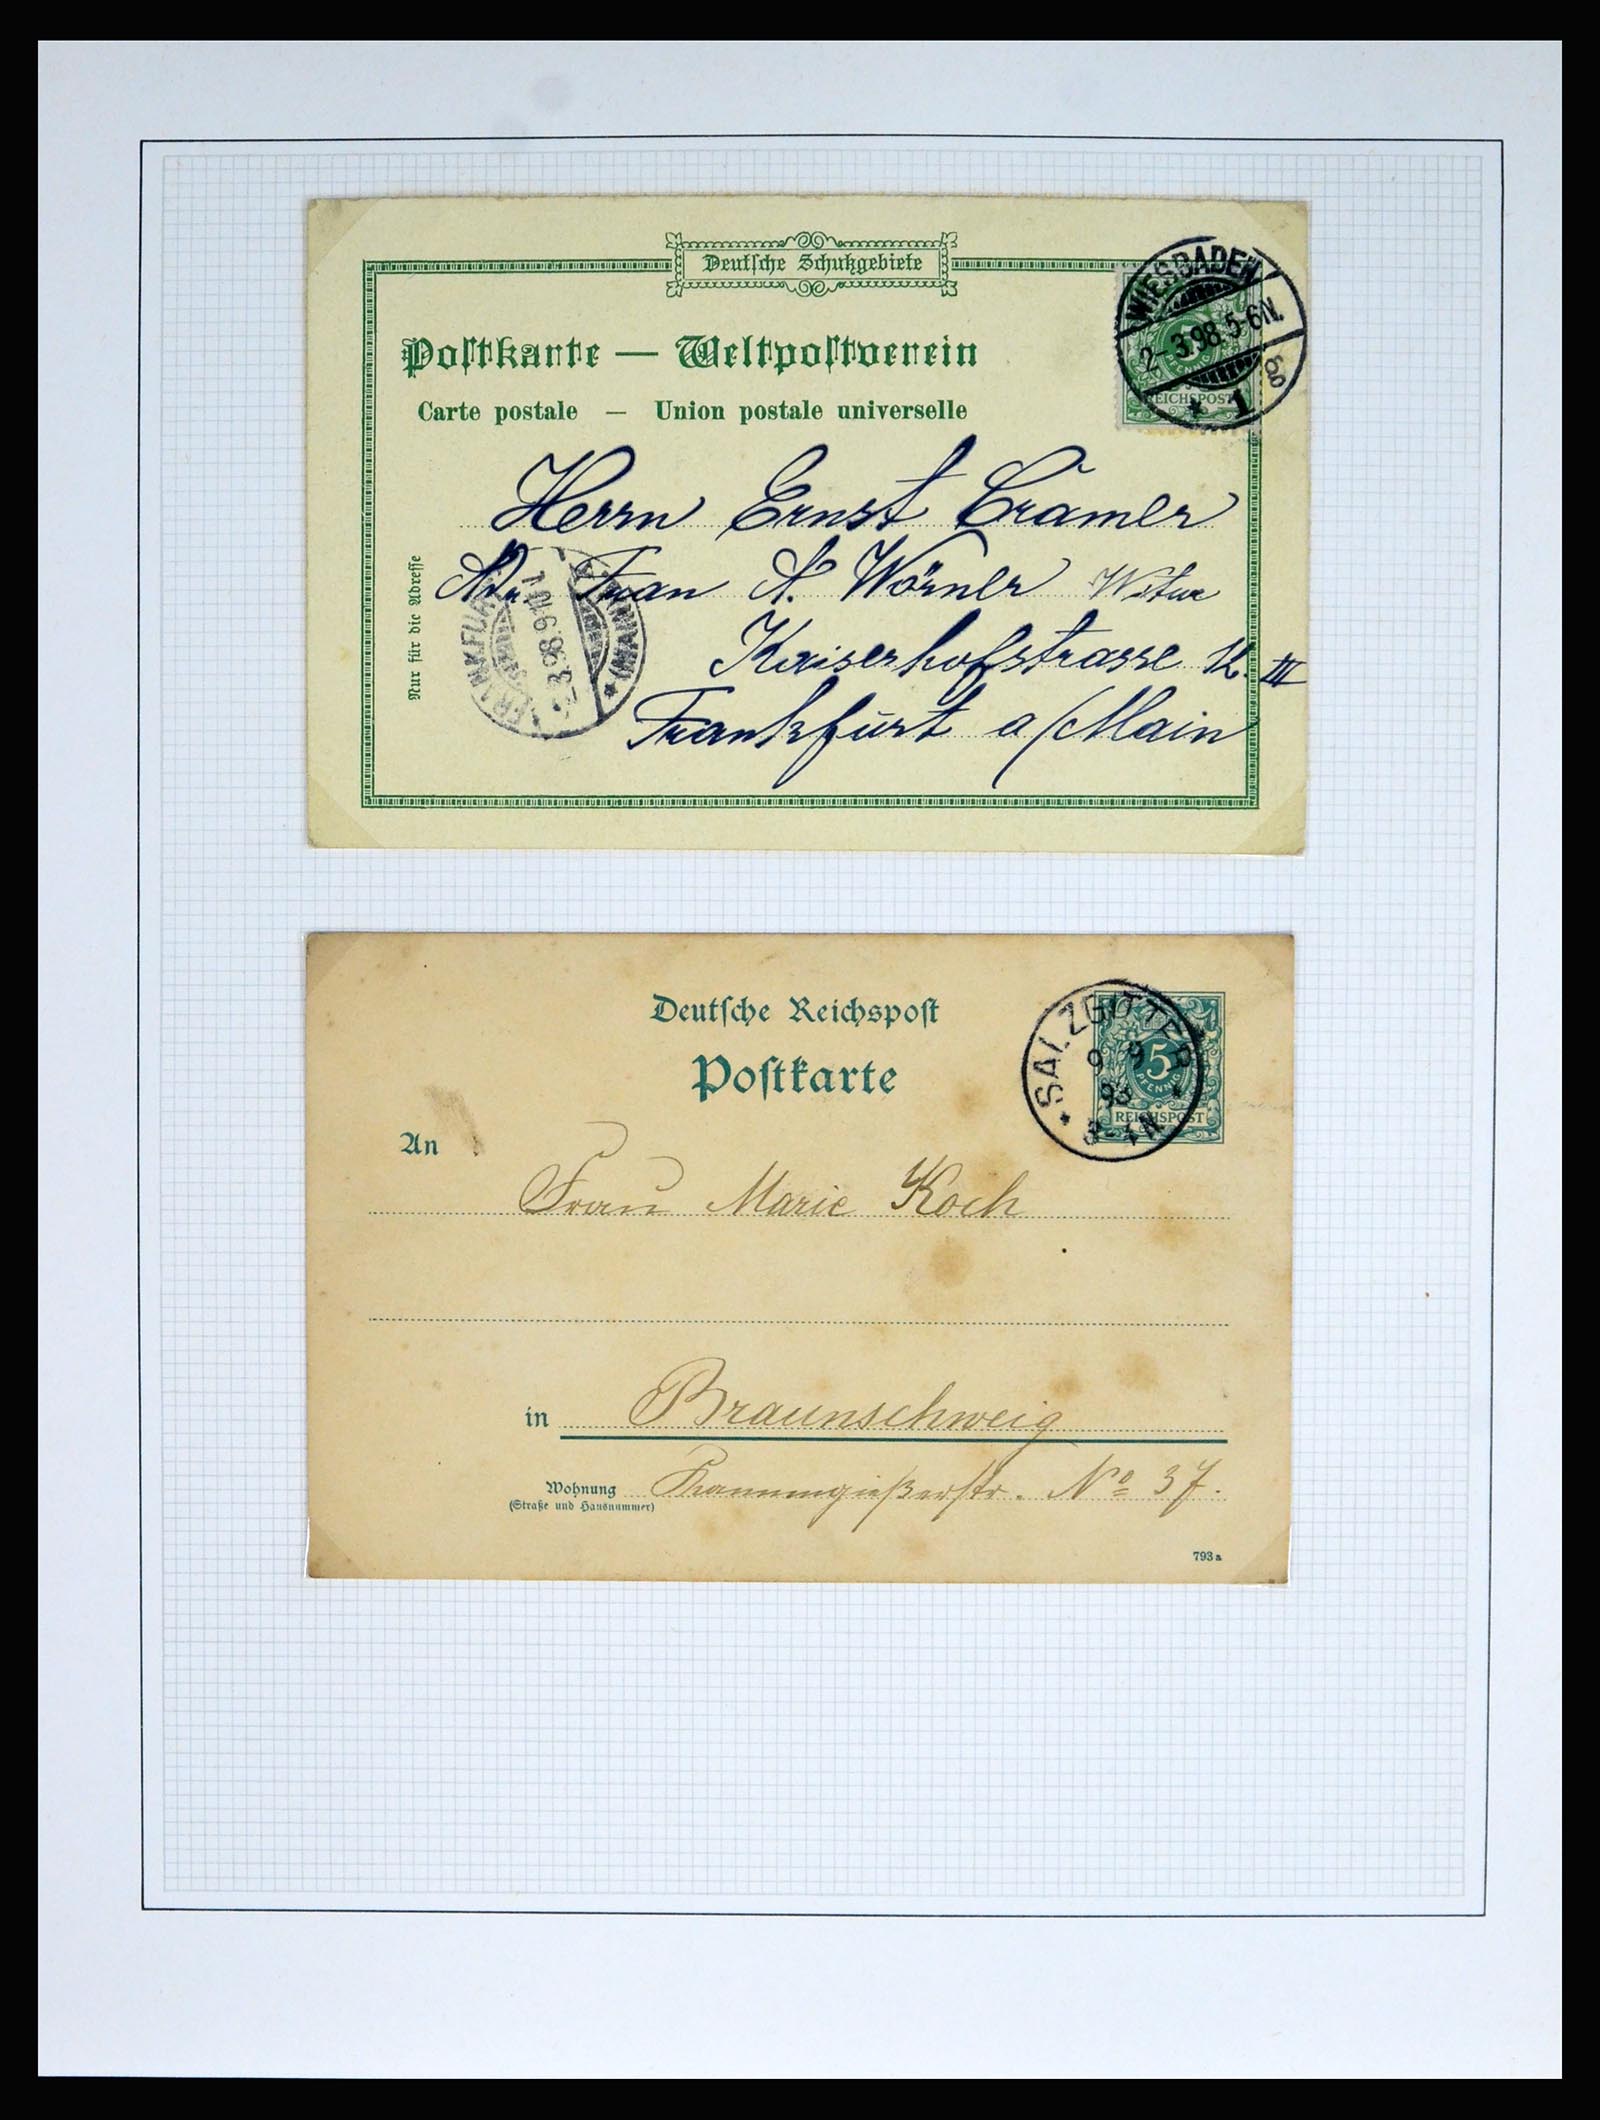 Deutsche Schutzgebiete
Postkarte — Weltpostverein
Carte postale — Union postale universelle
WIESBADEN
2-3.98.5-6N.
* 1 g
PFENNIG
REICHSPOST
Herrn Ernst Cramer
Adr. Frau A. Wörner Witwe
Kaiserhofstrasse 12. III
Frankfurt a/Main
Nur für die Adresse
FRANKFURT
(MAIN) *
Deutsche Reichspost
Postkarte
* SALZGITTER *
9 9
93
3-4N
5
PFENNIG
REICHSPOST
An
Frau Marie Koch
in Braunschweig
Wohnung Kannengießerstr. No 37.
(Straße und Hausnummer)
793a